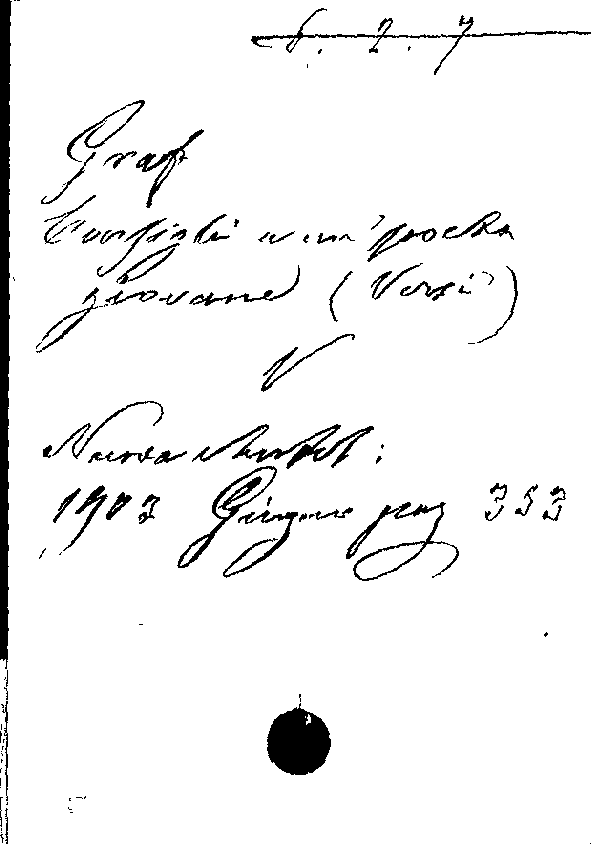 6. 2. 7
Graf
Consigli a un poeta
giovane (Versi)
V
Nuova Antol:
1903 Giugno pag 353